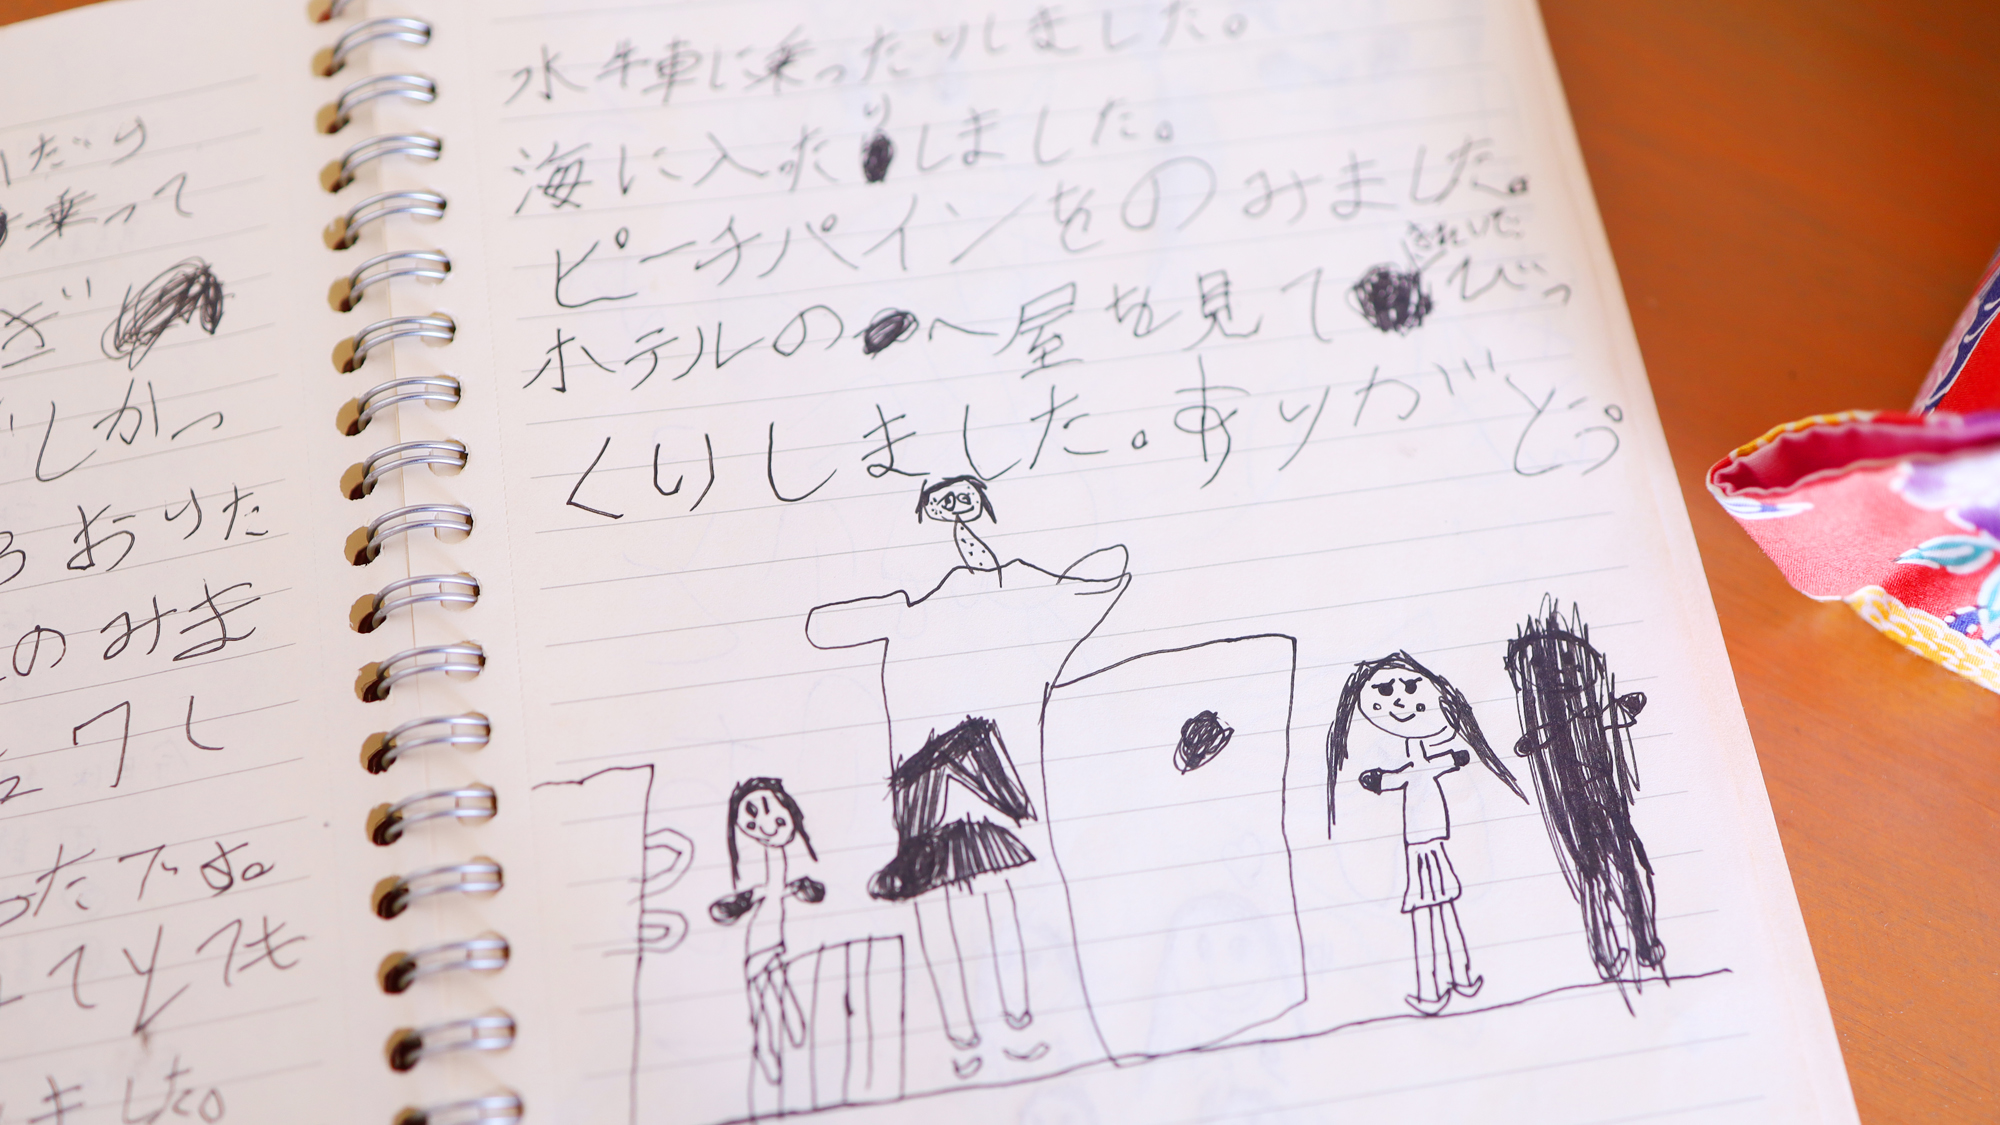 だり
乗って
ぎ
しかっ
おりた
のみま
し
ったです。
ました。
水牛車に乗ったりしました。
海に入ったりしました。
ピーチパインをのみました。
きれいで
ホテルのへ屋を見てびっ
くりしました。ありがとう。